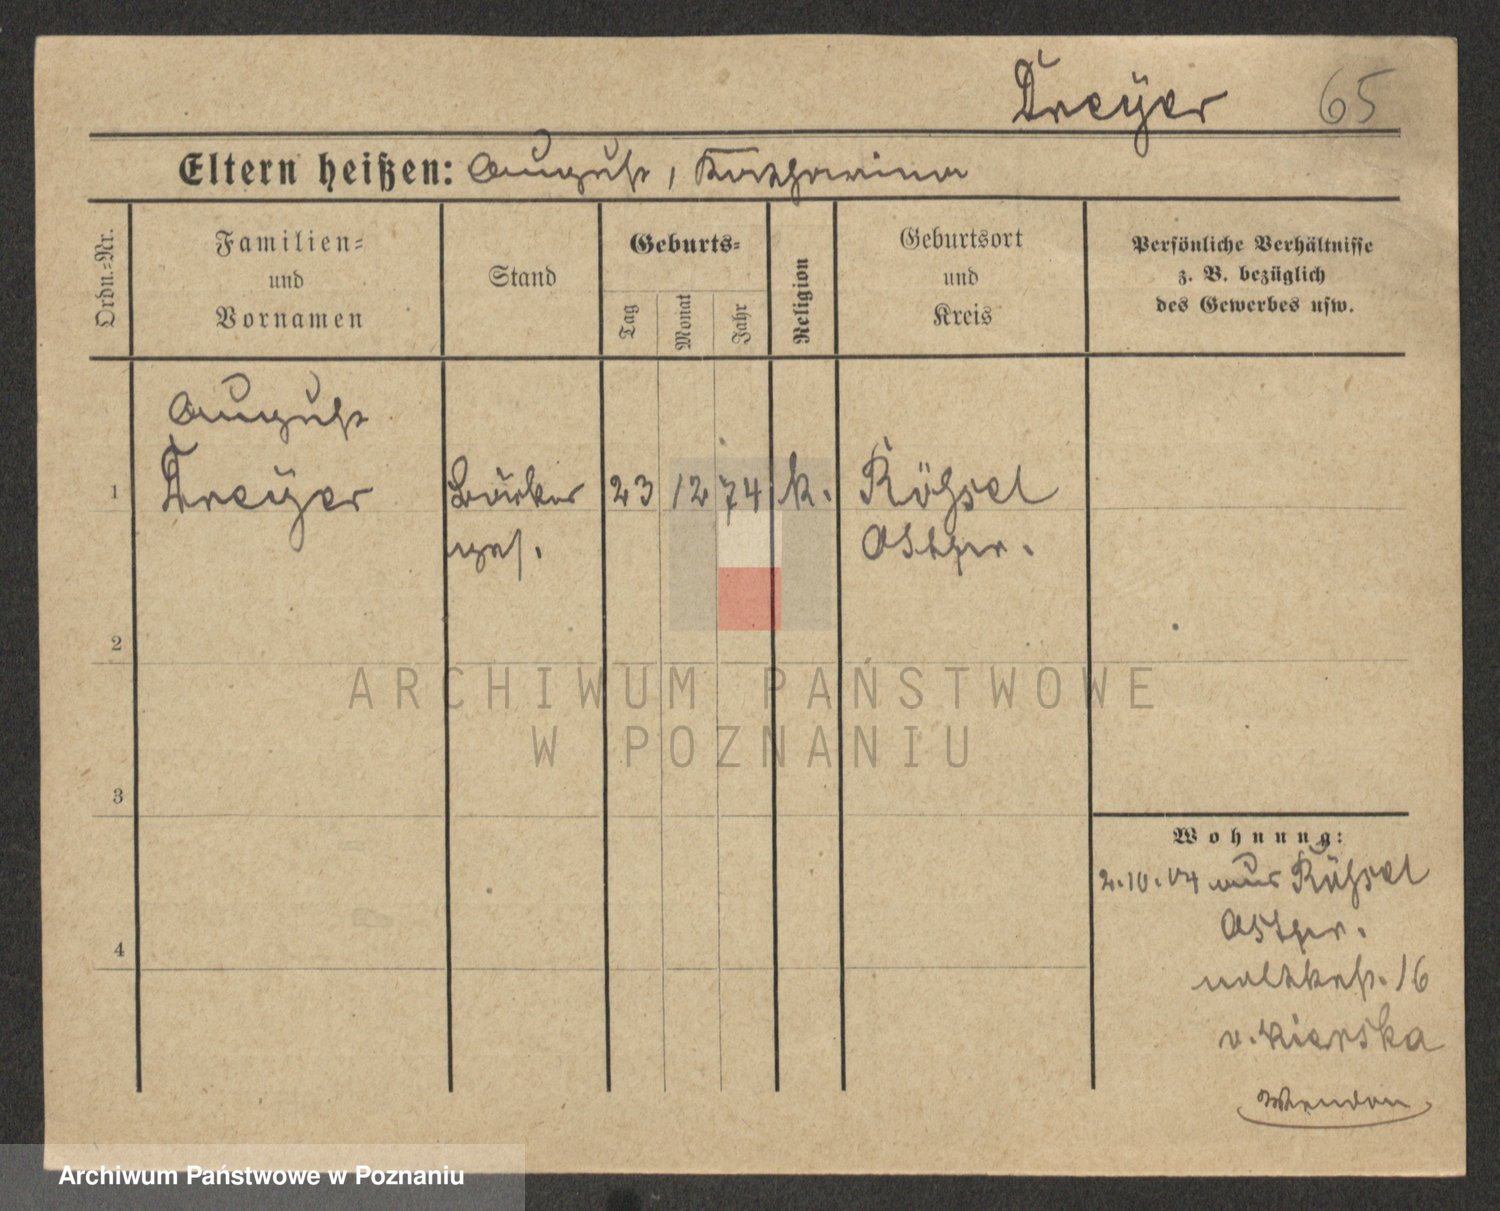 Dreÿer 65
Eltern heißen: August, Katharina
Ordn.=Nr.
Familien=
und
Vornamen
Stand
Geburts=
Tag
Monat
Jahr
Religion
Geburtsort
und
Kreis
Persönliche Verhältnisse
z. B. bezüglich
des Gewerbes usw.
August
1 Dreÿer Bäcker 23 12 74 k. Rößel
ges. Ostpr.
2
ARCHIWUM PAŃSTWOWE
W POZNANIU
3
Wohnung:
2.10.04 aus Rößel
4 Ostpr.
16
v. Kierska
Archiwum Państwowe w Poznaniu